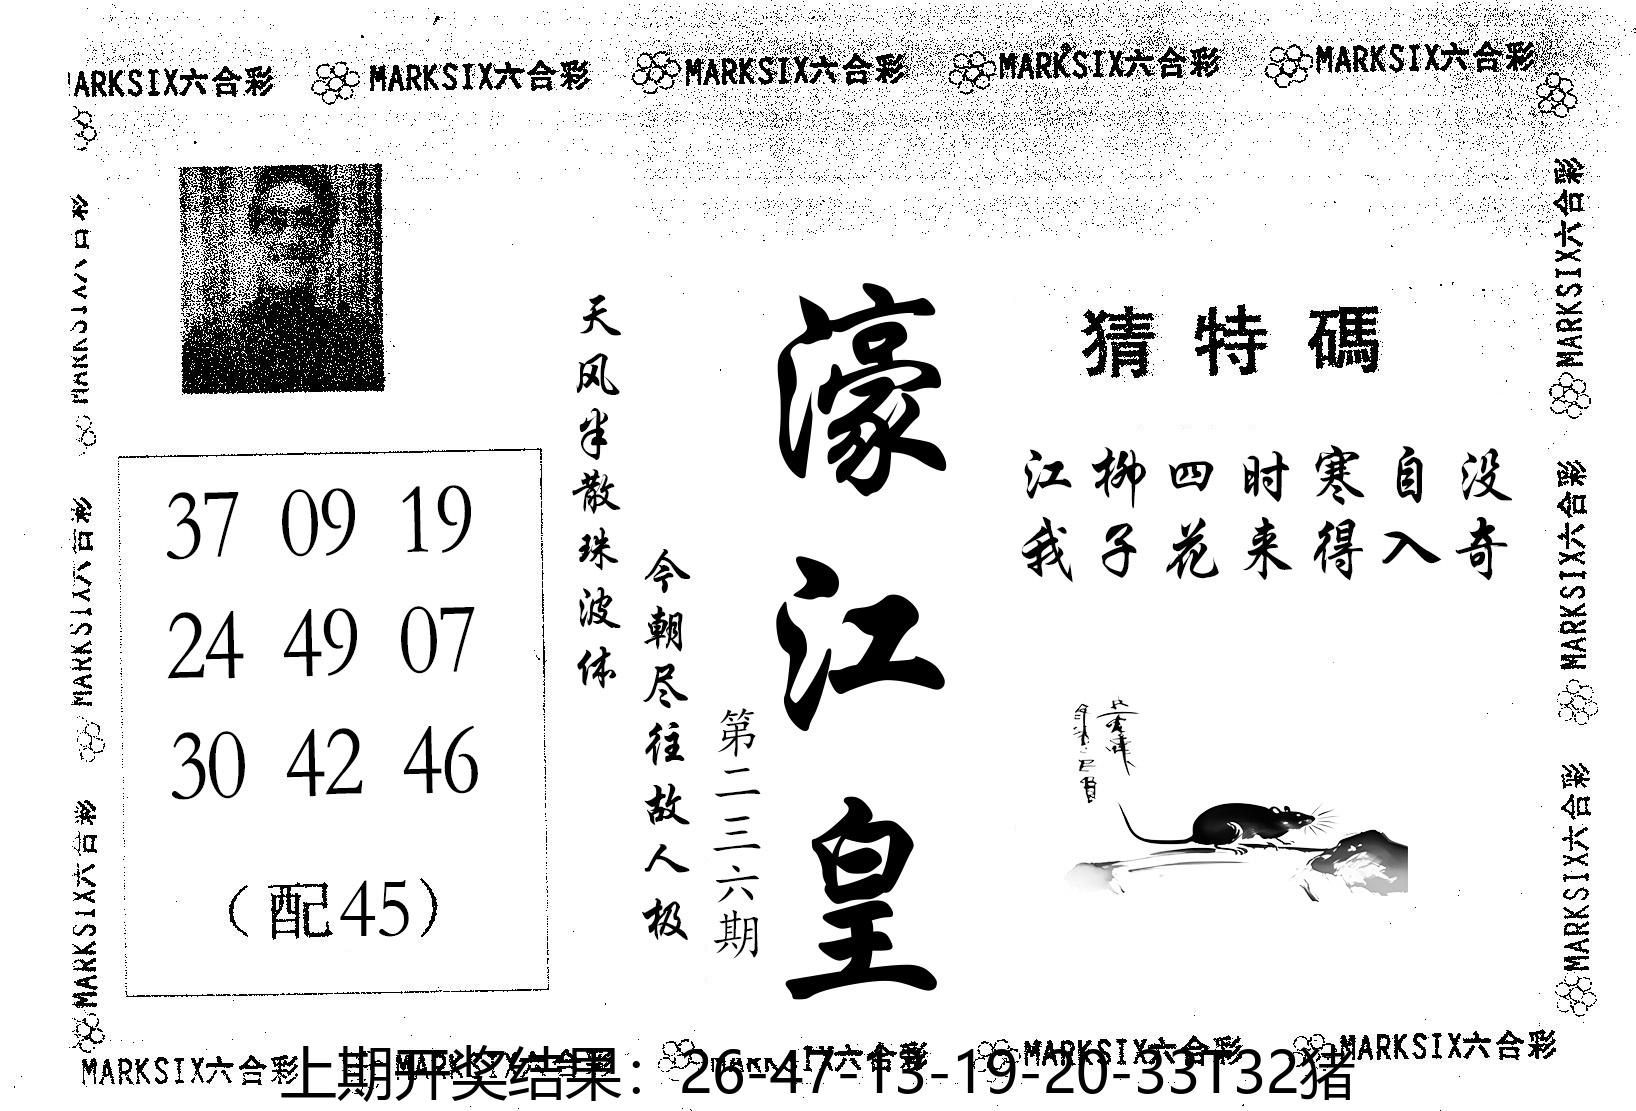 MARKSIX六合彩 MARKSIX六合彩 MARKSIX六合彩 MARKSIX六合彩 MARKSIX六合彩
MARKSIX六合彩
MARKSIX六合彩
MARKSIX六合彩
MARKSIX六合彩
MARKSIX六合彩
MARKSIX六合彩
37 09 19
24 49 07
30 42 46
（配45）
天风半散珠波体
今朝尽往故人极
第二三六期
濠江皇
猜特碼
江柳四时寒自没
我子花来得入奇
MARKSIX六合彩 MARKSIX六合彩 MARKSIX六合彩 MARKSIX六合彩 MARKSIX六合彩
上期开奖结果：26-47-13-19-20-33T32猪